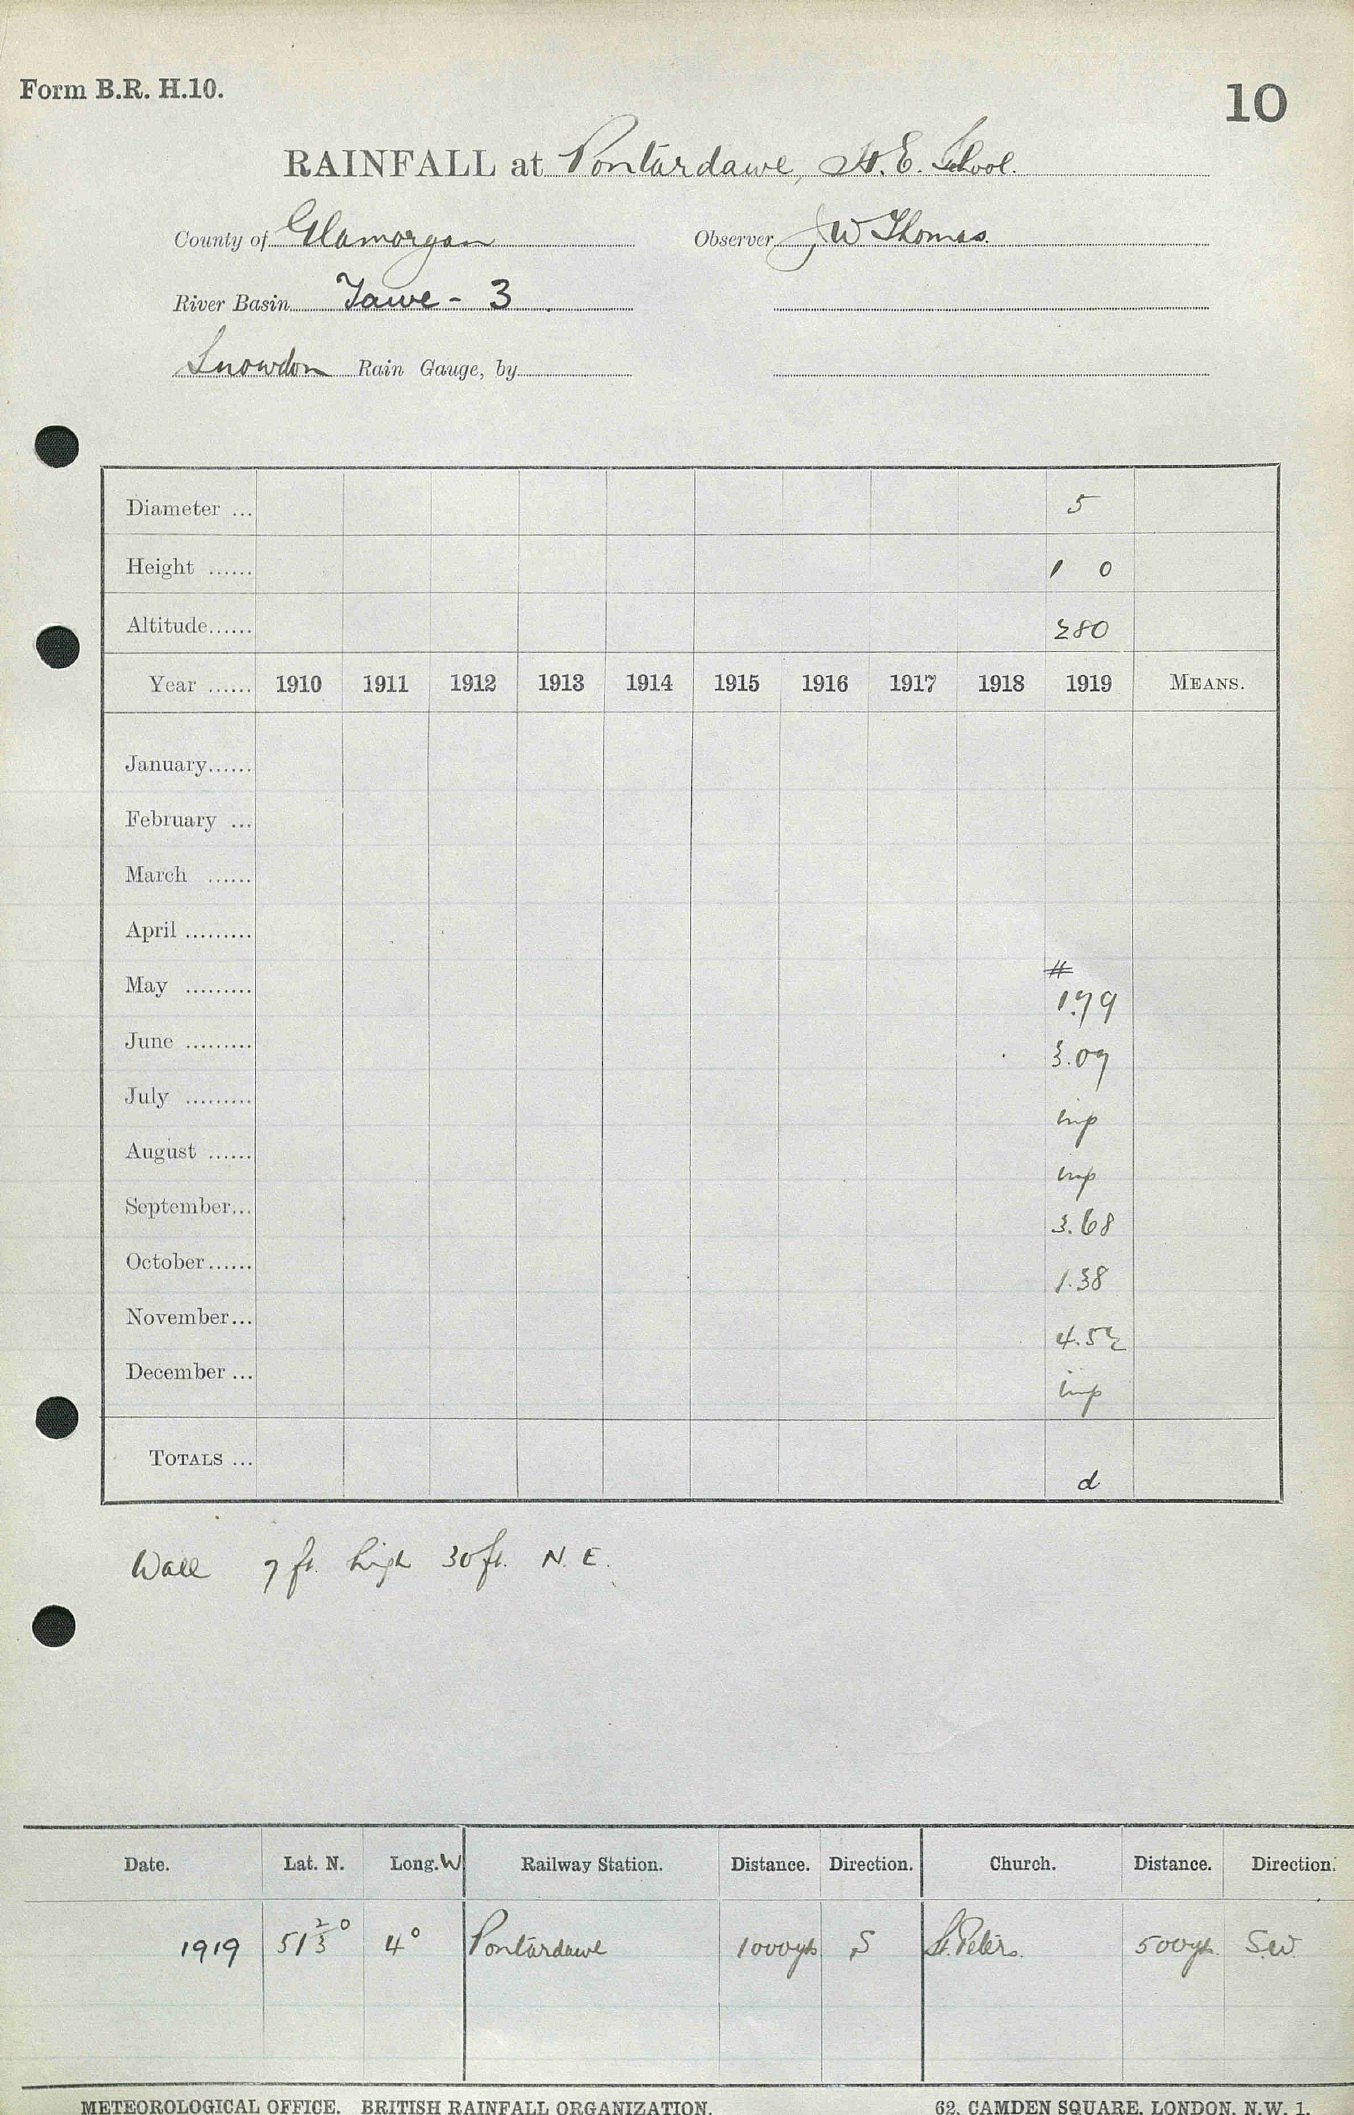 Form B.R. H.10.
10
RAINFALL at Pontardawe, H. E. School.
County of Glamorgan Observer J W Thomas.
River Basin Tawe - 3
Snowdon Rain Gauge, by
Diameter ... 5
Height ...... 1 0
Altitude...... 280
Year ...... 1910 1911 1912 1913 1914 1915 1916 1917 1918 1919 MEANS.
January......
February ...
March ......
April .........
#
May ......... 1.79
June ......... 3.07
July ......... imp
August ...... imp
September... 3.68
October...... 1.38
November... 4.52
December ... imp
TOTALS ... d
Wall 7 ft. high 30 ft. N. E.
Date. Lat. N. Long. W Railway Station. Distance. Direction. Church. Distance. Direction.
1919 51 2/3° 4° Pontardawe 1000 yds S St. Peters. 500 yds. S.W.
METEOROLOGICAL OFFICE. BRITISH RAINFALL ORGANIZATION. 62, CAMDEN SQUARE, LONDON, N.W. 1.